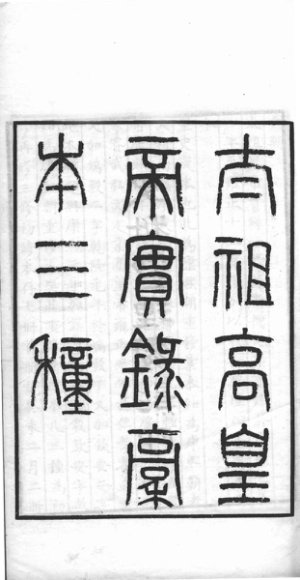 太祖高皇
帝實錄稾
本三種